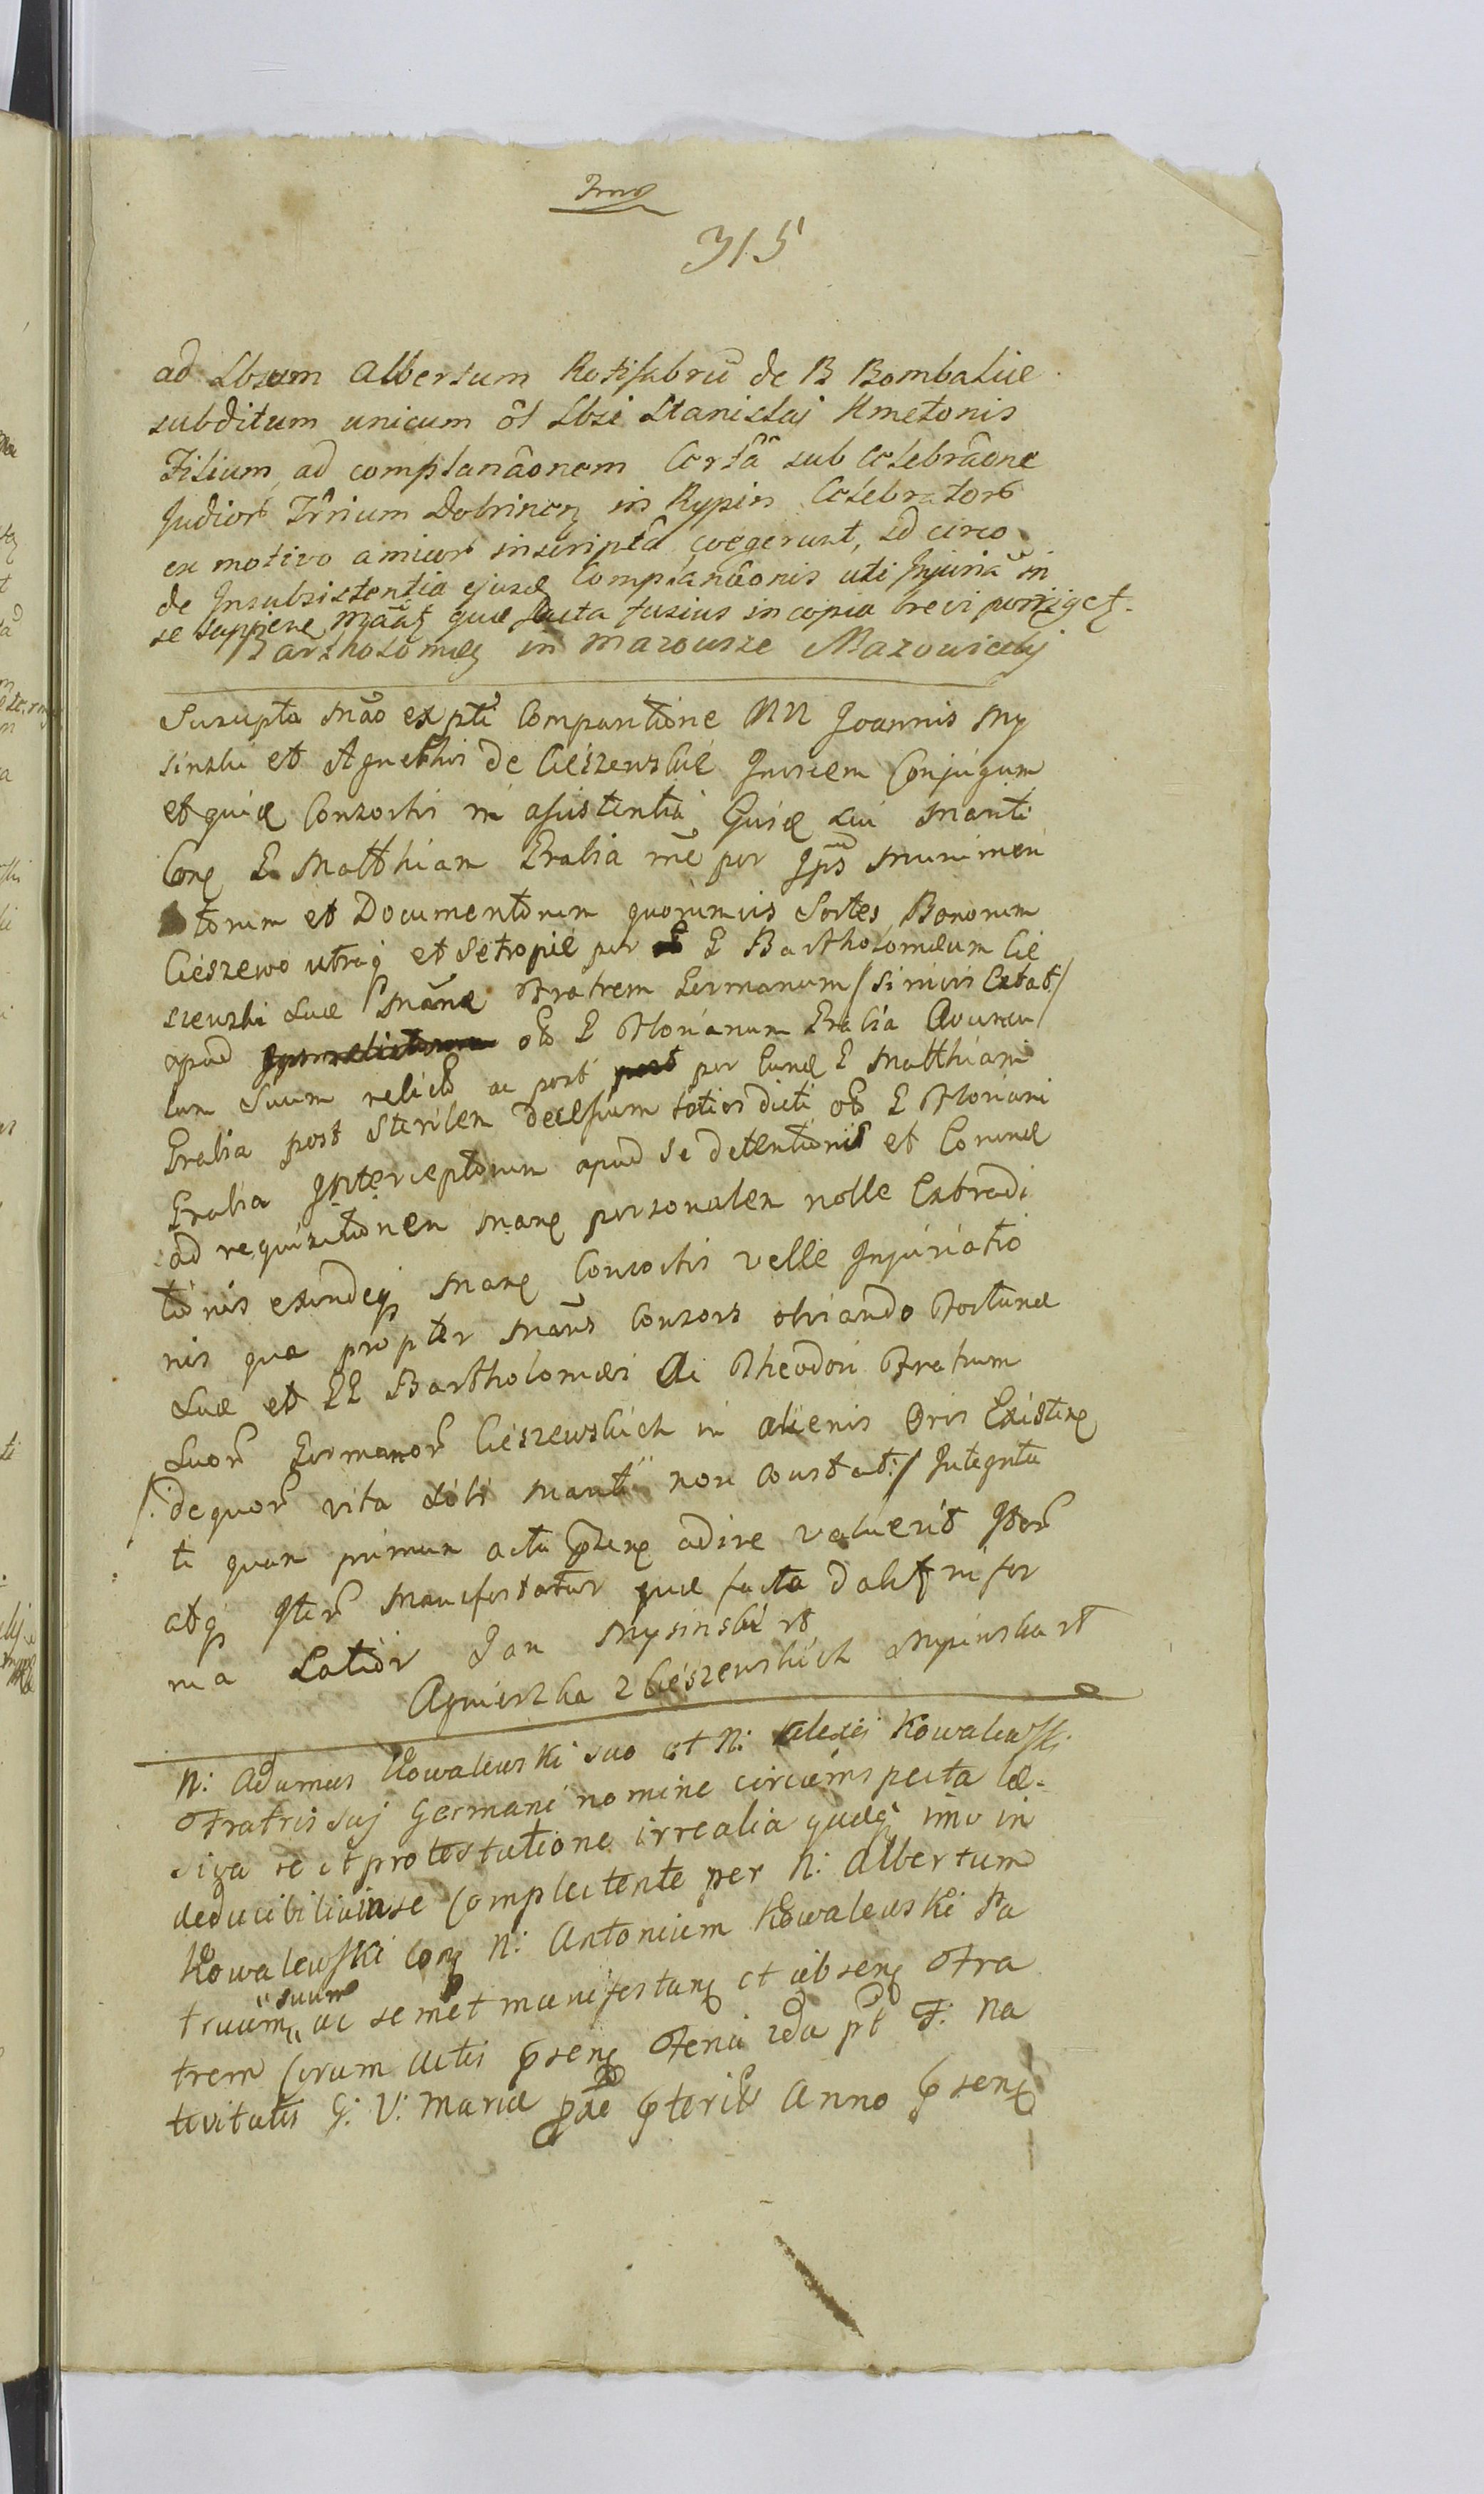 315
ad Lbsum Albertum Rotifabrũ de B Bombalice
subditum unicum ol Lbsi Stanislaj Kmetonis
Filium, ad complanãonem Certã sub Celebrãone
Judior Trrium Dobrinen in Rypin Celebrator
ex motivo amicor inscriptã coegerunt, id circo
de Insubsistentia ejusd Complanãonis uti Injuriã in
se sappiene mãat quæ facta fusius in copia brevi porriget.
Bartholomeg in Mazowsze Mazowiecky
Suscepta Mão ex pti Comparitione NN Joannis My
sinski et Agnethis de Cieszewskie Invicem Conjugum
et quid Consortis in assistentia Gusd sui Mariti
Cong G Matthiam Gralia me per Ips munimen
torum et Documentorum quorumvis Sortes Bonorum
Cieszewo utraq et Setropie per G Bartholomæum Cie
szewski suæ Mãnæ Fratrem Germanum / si nivis Extat /
apud ol G Florianum Gralia Avuncu
lum Suum relict ac post per Eund G Matthiam
Gralia post Sterilem decessum toties dicti ol G Floriani
Gralia Interceptorum apud se detentionis et Eorund
ad requisitionem Mang personalem nolle Extradi
tionis exindeq Mang Consortis velle Injuriatio
nis qua propter Mans Consors obviando Fortunæ
suæ et GG Bartholomæi Ac Theodori Fratrum
suor Germanor Cieszewskich in alienis Oris Existeng
/: de quor vita sibi Manti non constat :/ Integrita
te quam primum acta pseng adire valuerit Iter
atq Iter Manifestatur quæ facta dabit in for
ma Latior Jan Mysinski rt
Agnieszka z Cieszewskich Mysinska rt
N: Adamus Kowalewski suo et N: Alexij Kowalewski
Fratris suj Germani nomine circumspecta læ-
siva se et protestatione irrealia quæq imo in
deducibilia in se Complectente per N: Albertum
Kowalewski cong N: Antonium Kowalewski Pa
truum suum ac semet manifestang et abseng Fra
trem Coram Actis pseng Feria 2da pt F: Na
tivitatis G: V: Mariæ pde pterit Anno pseng